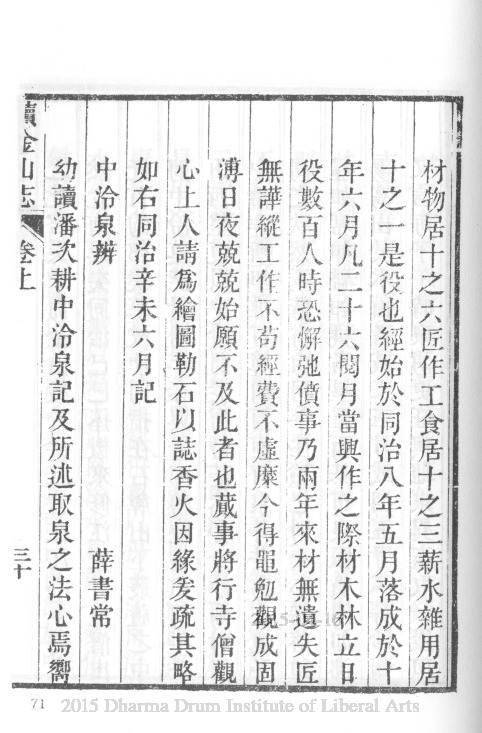 材物居十之六匠作工食居十之三薪水雜用居
十之一是役也經始於同治八年五月落成於十
年六月凡二十六閱月當興作之際材木林立日
役數百人時恐懈弛僨事乃兩年來材無遺失匠
無譁縱工作不苟經費不虛糜今得黽勉觀成固
溥日夜兢兢始願不及此者也蕆事將行寺僧觀
心上人請為繪圖勒石以誌香火因緣爰疏其略
如右同治辛未六月記
中泠泉辨 薛書常
幼讀潘次耕中泠泉記及所述取泉之法心焉嚮
續金山志 卷上 三十
71 2015 Dharma Drum Institute of Liberal Arts